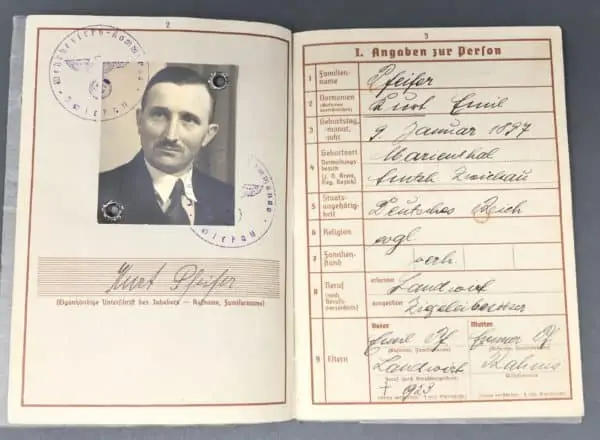 2
Wehrbezirks-Kommando
Zwickau
Kurt Pfeifer
(Eigenhändige Unterschrift des Inhabers — Rufname, Familienname)
3
I. Angaben zur Person
1 Familien-
name
Pfeifer
2 Vornamen
(Rufname
unterstreichen)
Kurt Emil
3 Geburtstag,
-monat,
-jahr
9. Januar 1897
4 Geburtsort
Verwaltungs-
bezirk
(z. B. Kreis,
Reg. Bezirk)
Marienthal
Amtsh. Zwickau
5 Staats-
angehörig-
keit
Deutsches Reich
6 Religion
evgl.
7 Familien-
stand
verh.
8 Beruf
(nach
Berufs-
verzeichnis)
erlernter
Landwirt
ausgeübter
Ziegeleibesitzer
9 Eltern
Vater
Mutter
Emil Pf.
Pf.
(Rufname, Familienname)
Landwirt
† 1923